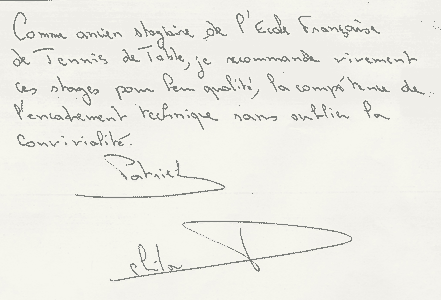 Comme ancien stagiaire de l'Ecole Française
de Tennis de Table, je recommande vivement
ces stages pour leur qualité, la compétence de
l'encadrement technique sans oublier la
convivialité.
Patrick